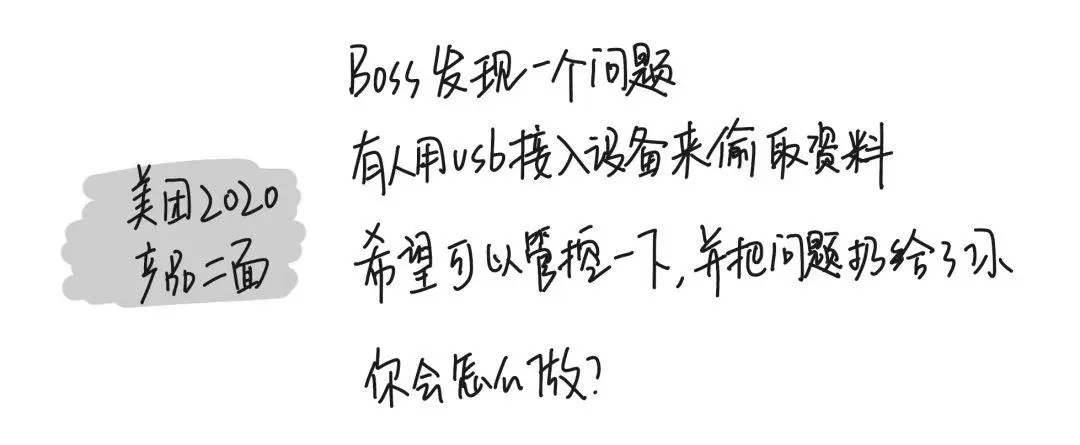 美团2020
产品二面
Boss发现一个问题
有人用usb接入设备来偷取资料
希望可以管控一下,并把问题扔给了你
你会怎么做?